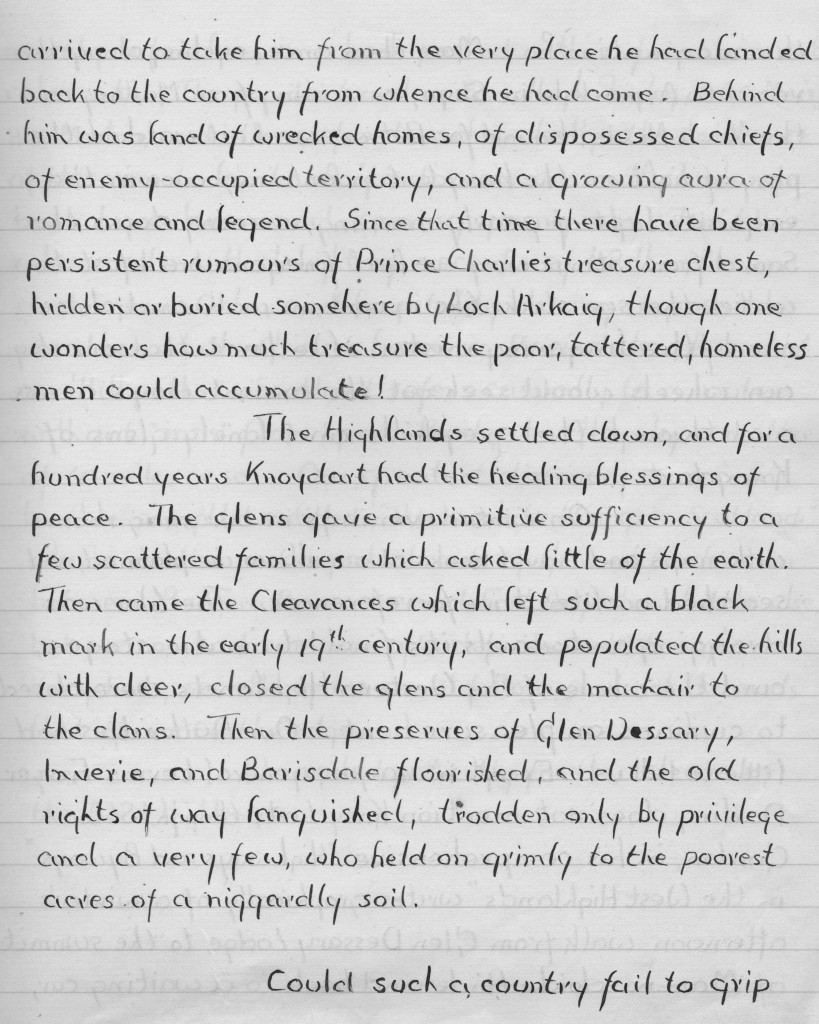 arrived to take him from the very place he had landed
back to the country from whence he had come. Behind
him was land of wrecked homes, of disposessed chiefs,
of enemy-occupied territory, and a growing aura of
romance and legend. Since that time there have been
persistent rumours of Prince Charlie's treasure chest,
hidden or buried somehere by Loch Arkaig, though one
wonders how much treasure the poor, tattered, homeless
men could accumulate!
The Highlands settled down, and for a
hundred years Knoydart had the healing blessings of
peace. The glens gave a primitive sufficiency to a
few scattered families which asked little of the earth.
Then came the Clearances which left such a black
mark in the early 19th century, and populated the hills
with deer, closed the glens and the machair to
the clans. Then the preserves of Glen Dessary,
Inverie, and Barisdale flourished, and the old
rights of way languished, trodden only by privilege
and a very few, who held on grimly to the poorest
acres of a niggardly soil.
Could such a country fail to grip